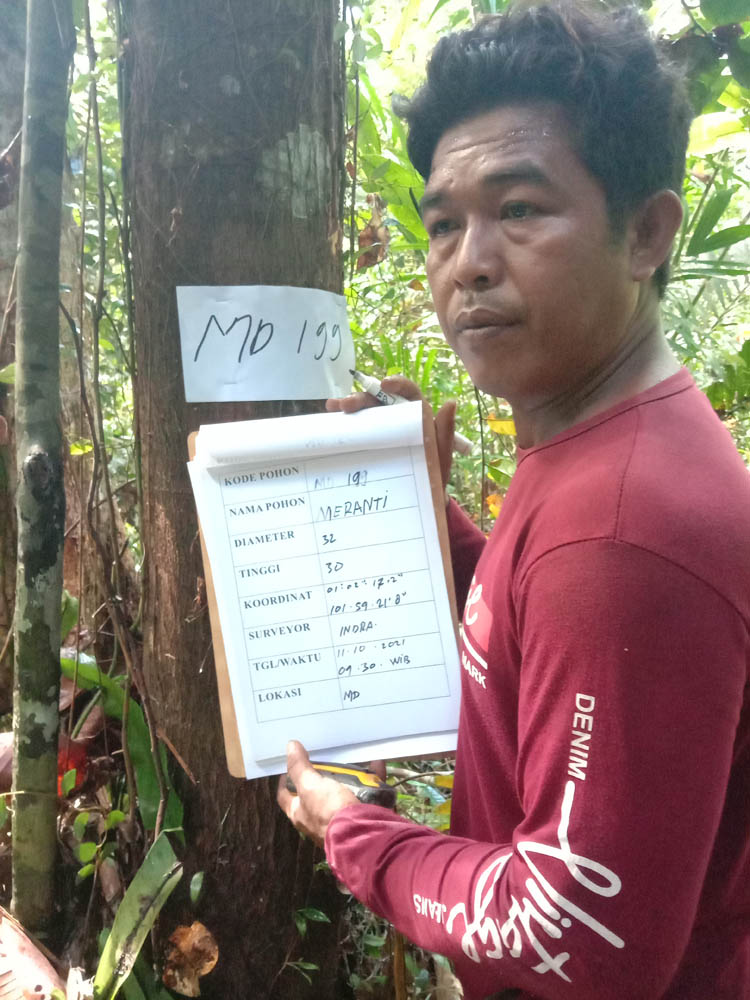 MD 199
KODE POHON MD 199
NAMA POHON MERANTI
DIAMETER 32
TINGGI 30
KOORDINAT 01°02'.17.2"
101.59.21'8"
SURVEYOR INDRA.
TGL/WAKTU 11.10.2021
09.30. WIB
LOKASI MD
MARK
DENIM
Vintage
JEANS